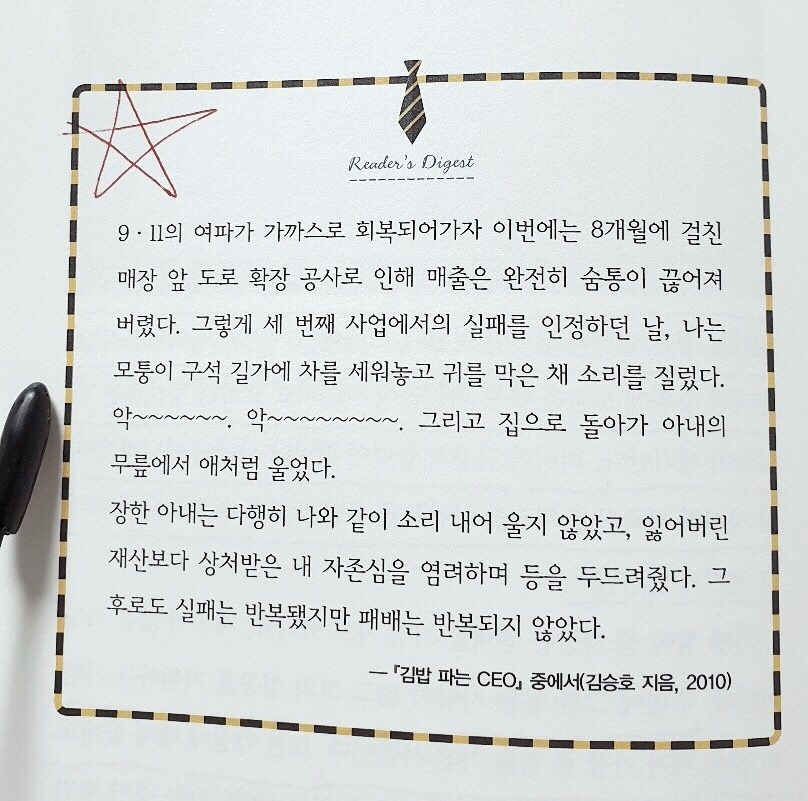 Reader's Digest
9·11의 여파가 가까스로 회복되어가자 이번에는 8개월에 걸친
매장 앞 도로 확장 공사로 인해 매출은 완전히 숨통이 끊어져
버렸다. 그렇게 세 번째 사업에서의 실패를 인정하던 날, 나는
모퉁이 구석 길가에 차를 세워놓고 귀를 막은 채 소리를 질렀다.
악~~~~~~. 악~~~~~~~~. 그리고 집으로 돌아가 아내의
무릎에서 애처럼 울었다.
장한 아내는 다행히 나와 같이 소리 내어 울지 않았고, 잃어버린
재산보다 상처받은 내 자존심을 염려하며 등을 두드려줬다. 그
후로도 실패는 반복됐지만 패배는 반복되지 않았다.
─『김밥 파는 CEO』 중에서(김승호 지음, 2010)